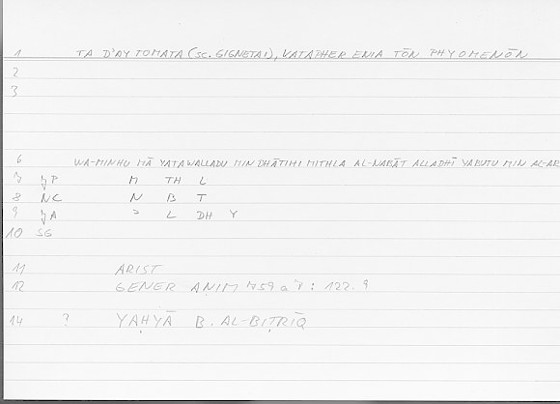 1 TA D'AYTOMATA (SC. GIGNETAI), KATAPHER ENIA TŌN PHYOMENŌN
2
3
6 WA-MINHU MĀ YATAWALLADU MIN DHĀTIHI MITHLA AL-NABĀT ALLADHĪ YABUTU MIN AL-AR
7 yP M TH L
8 NC N B T
9 yA ʾ L DH Y
10 SG
11 ARIST
12 GENER ANIM 759 a 8 : 122.9
14 ? YAḤYĀ B. AL-BIṬRĪQ